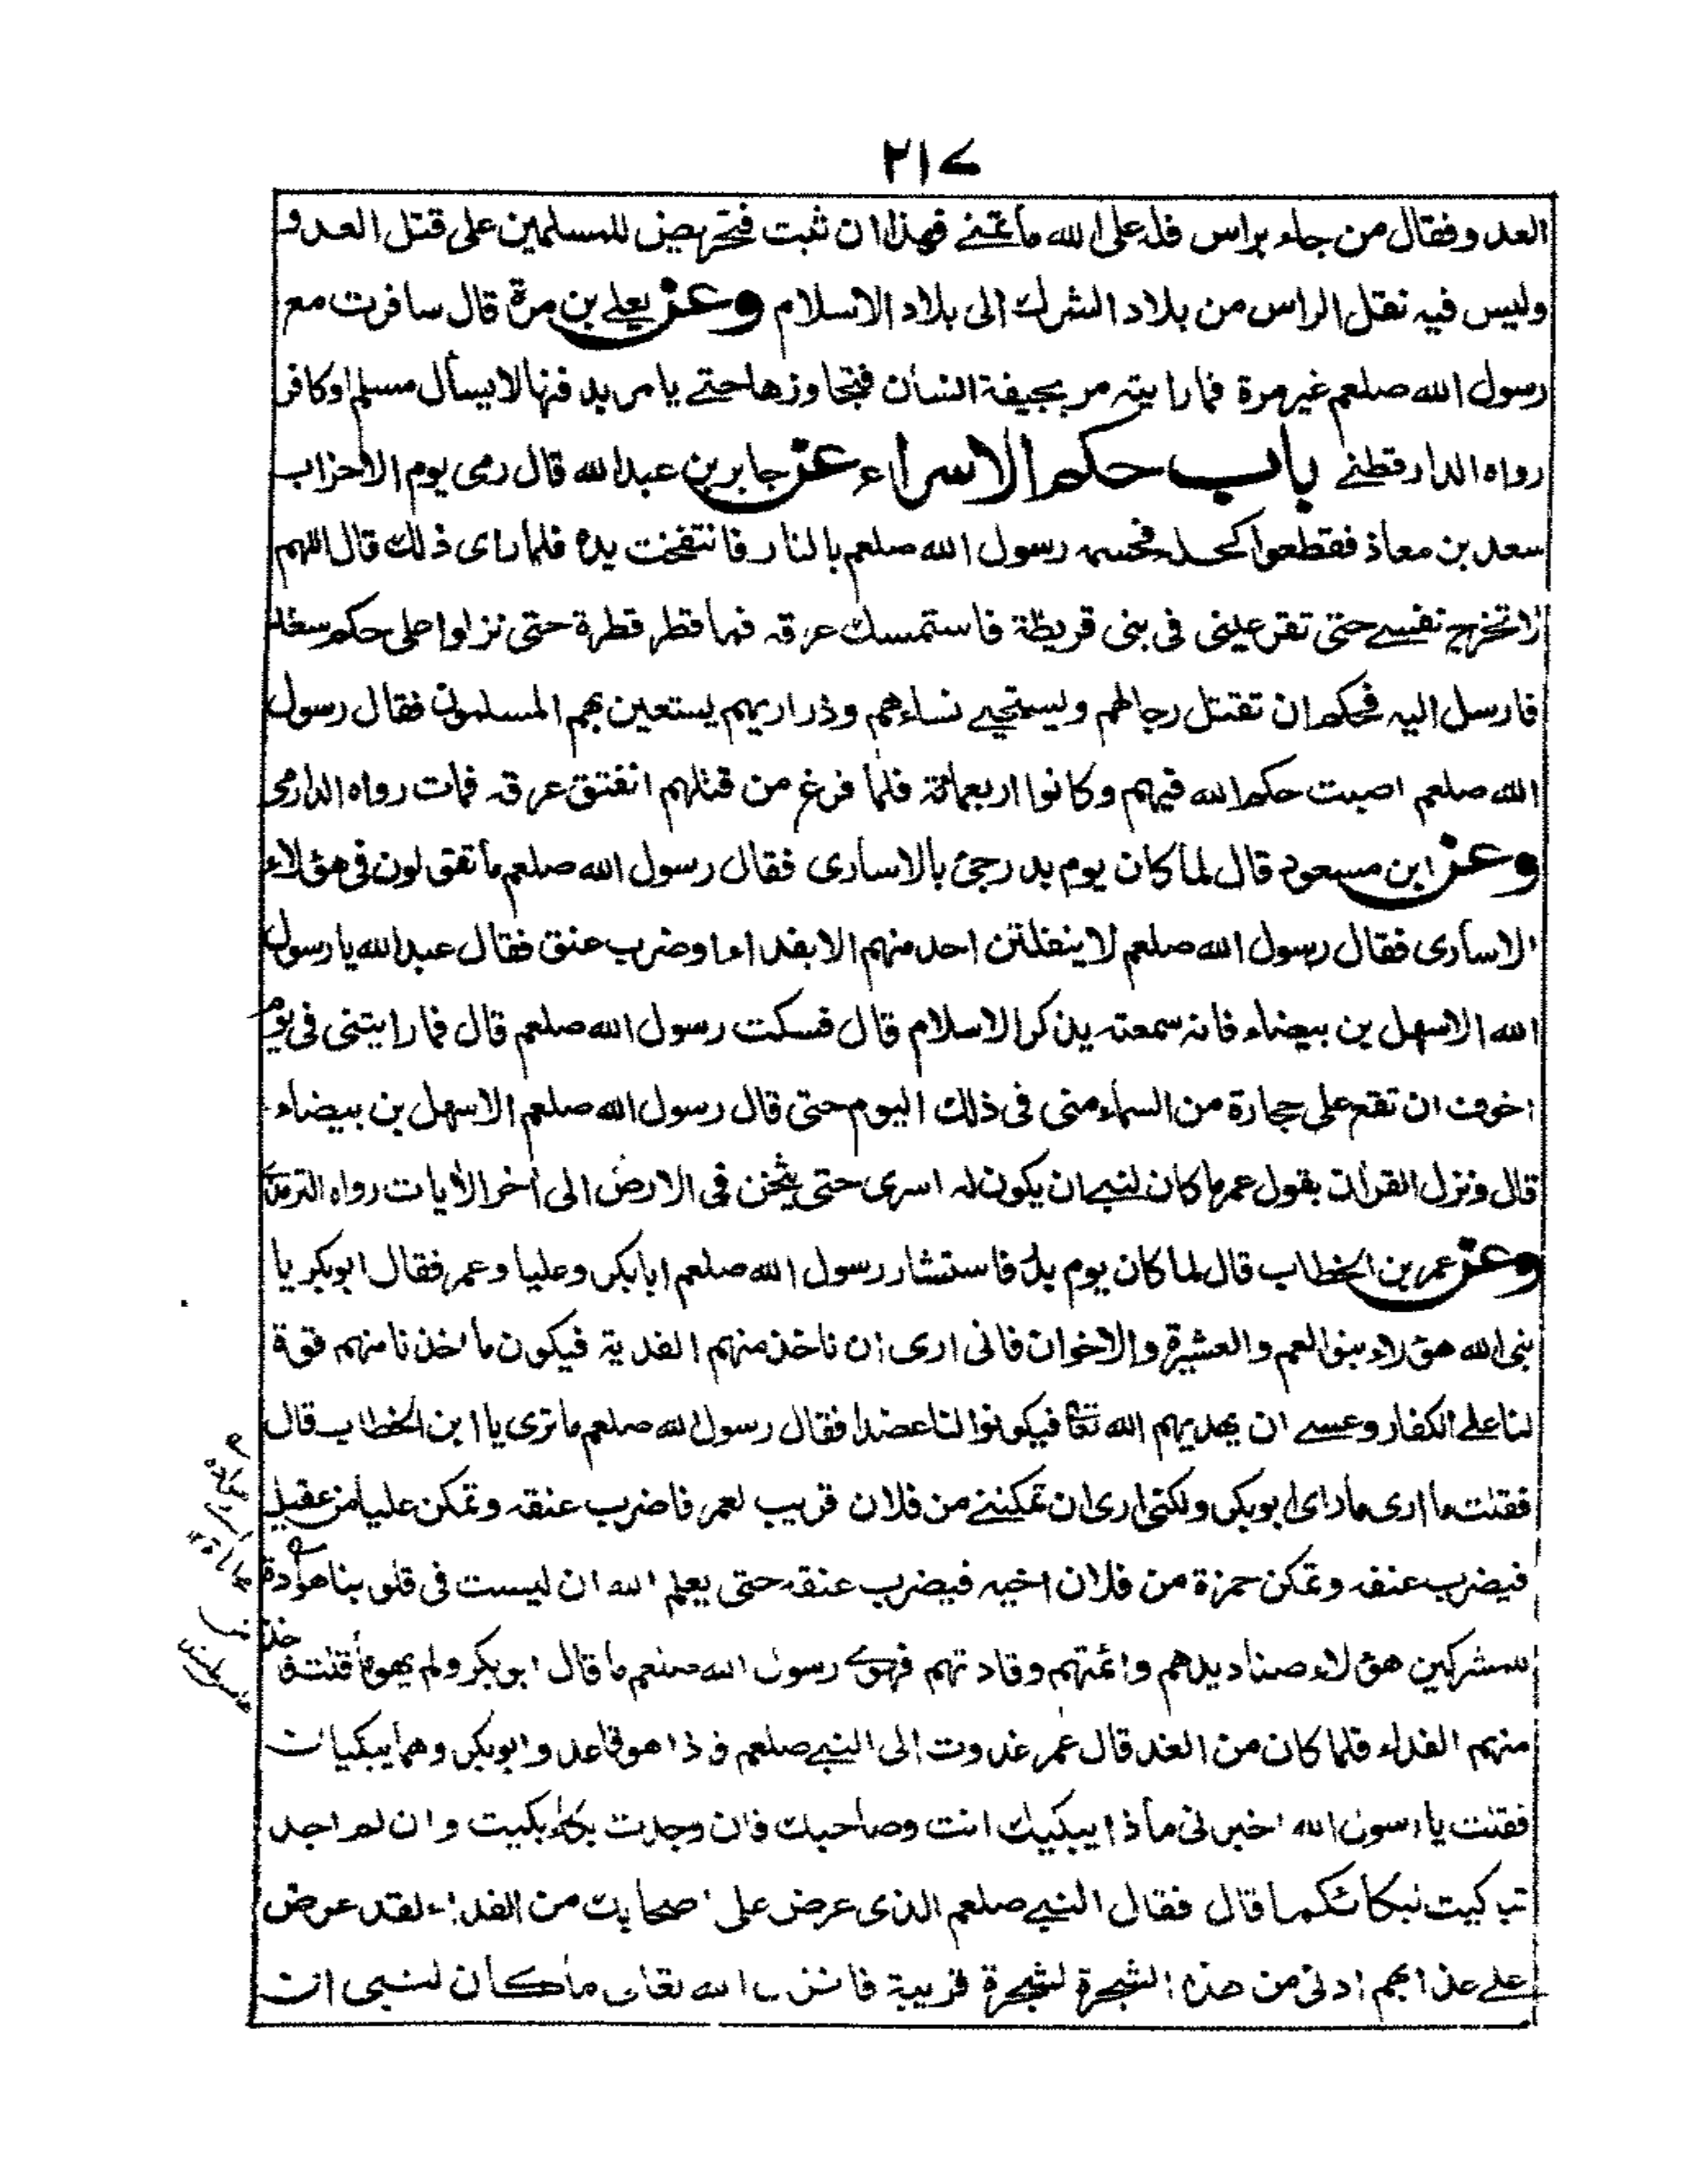 ٢١٧
العدو فقال من جاء براس فله على الله ما تمنے فهذا ان ثبت فتحريض للمسلمين على قتل العدو
وليس فيه نقل الراس من بلاد الشرك الى بلاد الاسلام وعن يعلے بن مرة قال سافرت مع
رسول الله صلعم غير مرة فما رايته مر بجيفة انسان فتجاوزها حتے يامر بدفنها لا يسأل مسلم او كافر
رواه الدارقطنے باب حكم الاسراء عن جابر بن عبد الله قال رمى يوم الاحزاب
سعد بن معاذ فقطعوا اكحله فحسمه رسول الله صلعم بالنار فانتفخت يده فلما راى ذلك قال اللهم
لا تخرج نفسے حتى تقر عينى فى بنى قريظة فاستمسك عرقه فما قطر قطرة حتى نزلوا على حكم سعد
فارسل اليه فحكم ان تقتل رجالهم ويستحيے نساءهم وذراريهم يستعين بهم المسلمون فقال رسول
الله صلعم اصبت حكم الله فيهم وكانوا اربعمائة فلما فرغ من قتلهم انفتق عرقه فمات رواه الدارمى
وعن ابن مسعود قال لما كان يوم بدر جئ بالاسارى فقال رسول الله صلعم ما تقولون فى هؤلاء
الاسارى فقال رسول الله صلعم لا ينفلتن احد منهم الا بفداء او ضرب عنق فقال عبد الله يا رسول
الله الا سهل بن بيضاء فانه سمعته يذكر الاسلام قال فسكت رسول الله صلعم قال فما رايتنى فى يوم
اخوف ان تقع على حجارة من السماء منى فى ذلك اليوم حتى قال رسول الله صلعم الا سهل بن بيضاء
قال ونزل القران بقول عمر ما كان لنبے ان يكون له اسرى حتى يثخن فى الارض الى اخر الأيات رواه الترمذى
وعن عمر بن الخطاب قال لما كان يوم بدر فاستشار رسول الله صلعم ابا بكر وعليا وعمر فقال ابو بكر يا
نبى الله هؤلاء بنو العم والعشيرة والاخوان فانى ارى ان ناخذ منهم الفدية فيكون ما اخذنا منهم قوة
لنا علے الكفار وعسے ان يهديهم الله تعا فيكونوا لنا عضدا فقال رسول الله صلعم ما ترى يا ابن الخطاب قال
فقلت ما ارى ما راى ابو بكر ولكنى ارى ان تمكننے من فلان قريب لعمر فاضرب عنقه وتمكن عليا من عقيل
فيضرب عنقه وتمكن حمزة من فلان اخيه فيضرب عنقه حتى يعلم الله ان ليست فى قلوبنا موادة
للمشركين هؤلاء صناديدهم وائمتهم وقادتهم فهوى رسول الله صلعم ما قال ابو بكر ولم يهو ما قلت فاخذ
منهم الفداء فلما كان من الغد قال عمر غدوت الى النبے صلعم فاذا هو قاعد وابو بكر وهما يبكيان
فقلت يا رسول الله اخبرنى ماذا يبكيك انت وصاحبك فان وجدت بكاء بكيت وان لم اجد
تباكيت لبكائكما قال فقال النبے صلعم الذى عرض على اصحابك من الفداء لقد عرض
علے عذابهم ادنى من هذه الشجرة لشجرة قريبة فانزل الله تعالى ما كان لنبى ان